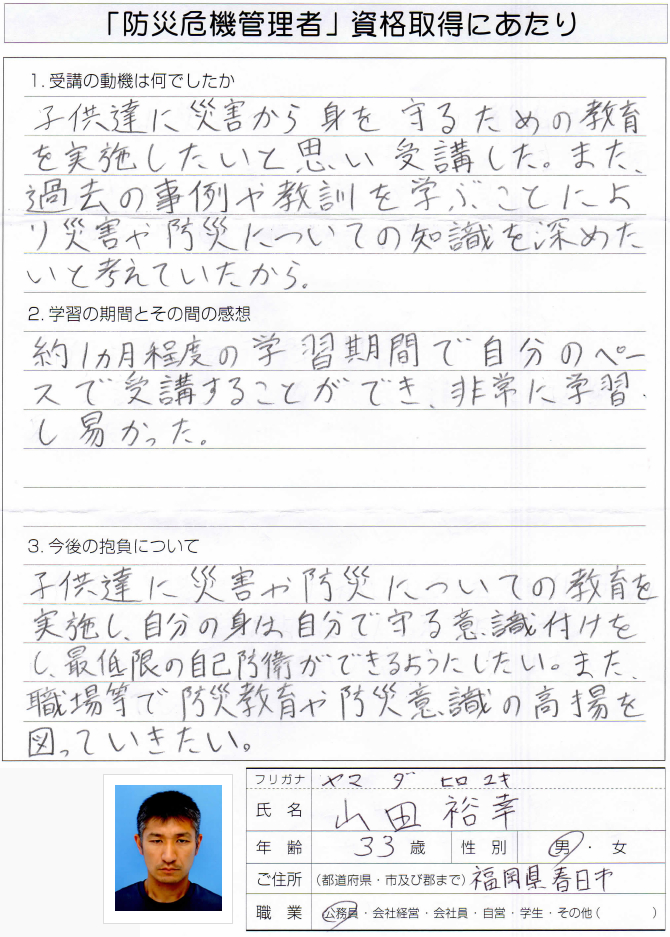 「防災危機管理者」資格取得にあたり
1. 受講の動機は何でしたか
子供達に災害から身を守るための教育
を実施したいと思い受講した。また、
過去の事例や教訓を学ぶことによ
り災害や防災についての知識を深めた
いと考えていたから。
2. 学習の期間とその間の感想
約1ヵ月程度の学習期間で自分のペー
スで受講することができ、非常に学習
し易かった。
3. 今後の抱負について
子供達に災害や防災についての教育を
実施し、自分の身は自分で守る意識付けを
し、最低限の自己防衛ができるようにしたい。また、
職場等で防災教育や防災意識の高揚を
図っていきたい。
フリガナ ヤマダ ヒロユキ
氏名 山田 裕幸
年齢 33歳 性別 男・女
ご住所 (都道府県・市及び郡まで) 福岡県春日市
職業 公務員・会社経営・会社員・自営・学生・その他( )